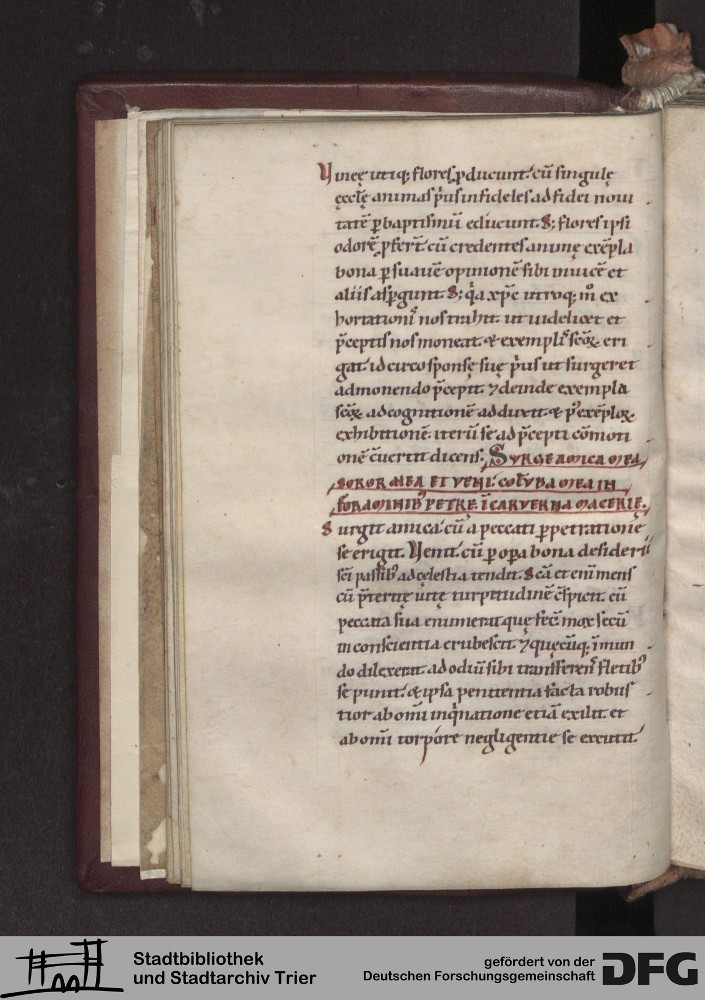 Vineę utiq; flores ꝓducunt. cū singulę
ęcclę animas p̄us infideles ad fidei noui
tatē ꝑ baptismū educunt. S; flores ipsi
odorē ꝓfert̄. cū credentes animę exēpla
bona ꝑ suauē opinionē sibi inuicē et
aliis asꝑgunt. S; q̇a xp̄c utroq; m̊ ex
hortationī nos trahit. ut uidelicet et
p̄ceptis nos moneat. & exemplı̄ sc̄oꝝ eri
gat. idcirco sponsę suę p̄us ut surgeret
admonendo p̄cepit. ⁊ deinde exempla
sc̄oꝝ ad cognitionē adduxit. & p̉ exēploꝝ
exhibitionē. iterū se ad p̄cepti cōmoni
onē c̄uertit dicens. SVRGE AMICA MEA
SOROR MEA ET VENI. COLŪBA MEA IN
FORAMINIBꝰ PETRĘ. Ī CAVERNA MACERIĘ.
Surgit amica. cū a peccati ꝑpetrationē
se erigit. Venit. cū ꝑ oꝑa bona desiderii
sc̄i passibꝰ ad cęlestia tendit. Sc̄a et enī mens
cū p̄teritę uitę turpitudinē c̄spicit. cū
peccata sua enumerat quę fec̄. mox secū
in conscientia erubescit. ⁊ quęcūq; ī mun
do dilexerat. ad odiū sibi transferens fletibꝰ
se punit. & ipsa penitentia facta robus
tior ab om̄i inq̇natione etiā exilit. et
ab om̄i torpore negligentie se excutit.
Stadtbibliothek
und Stadtarchiv Trier
gefördert von der
Deutschen Forschungsgemeinschaft
DFG